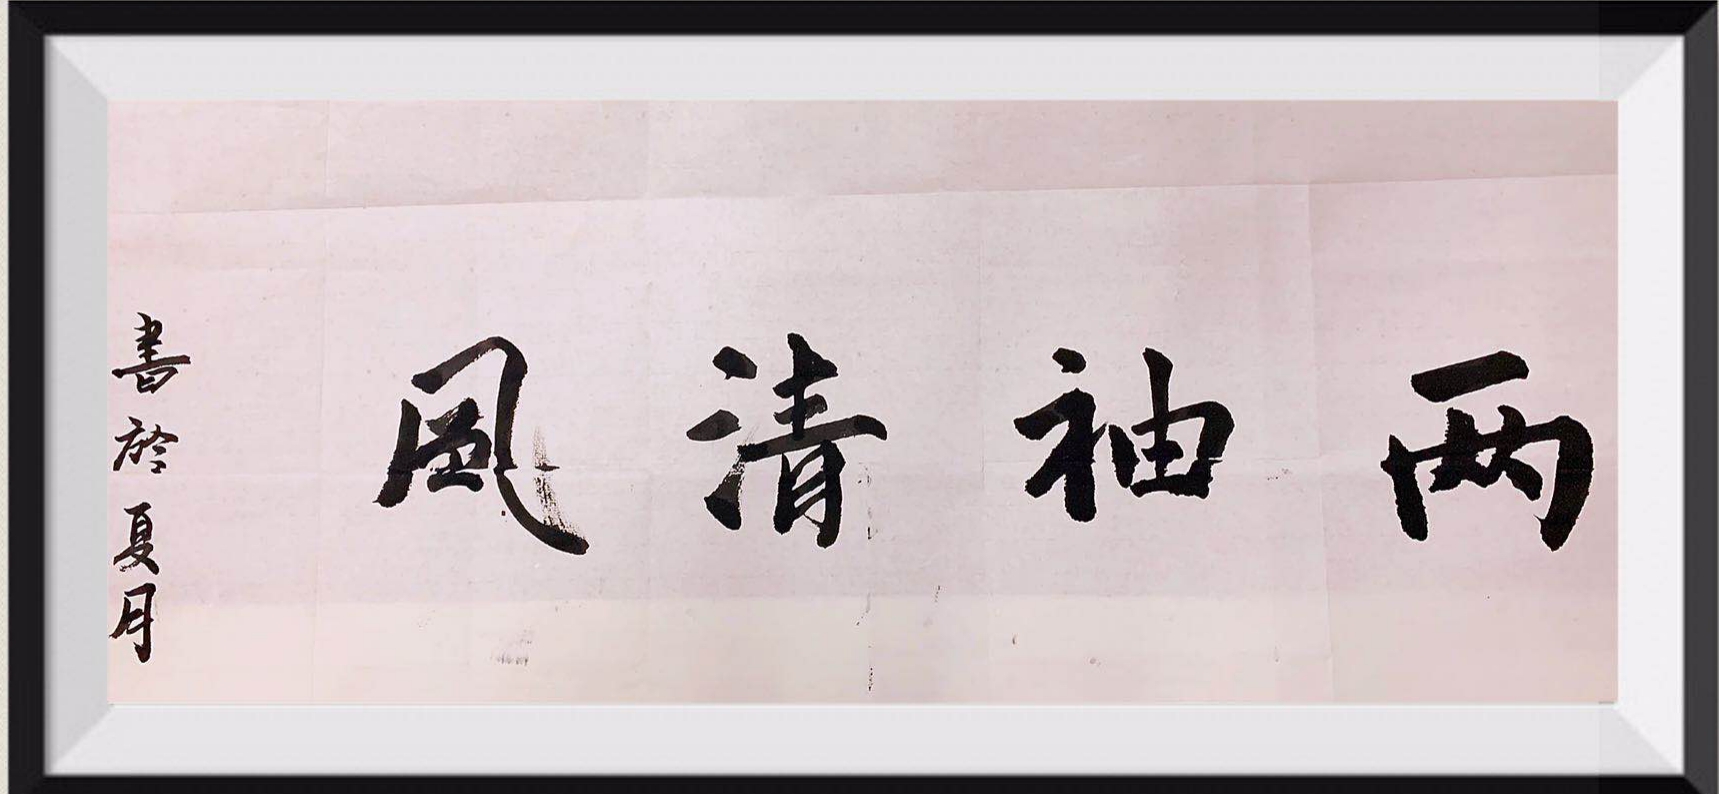 两袖清風
書於夏月